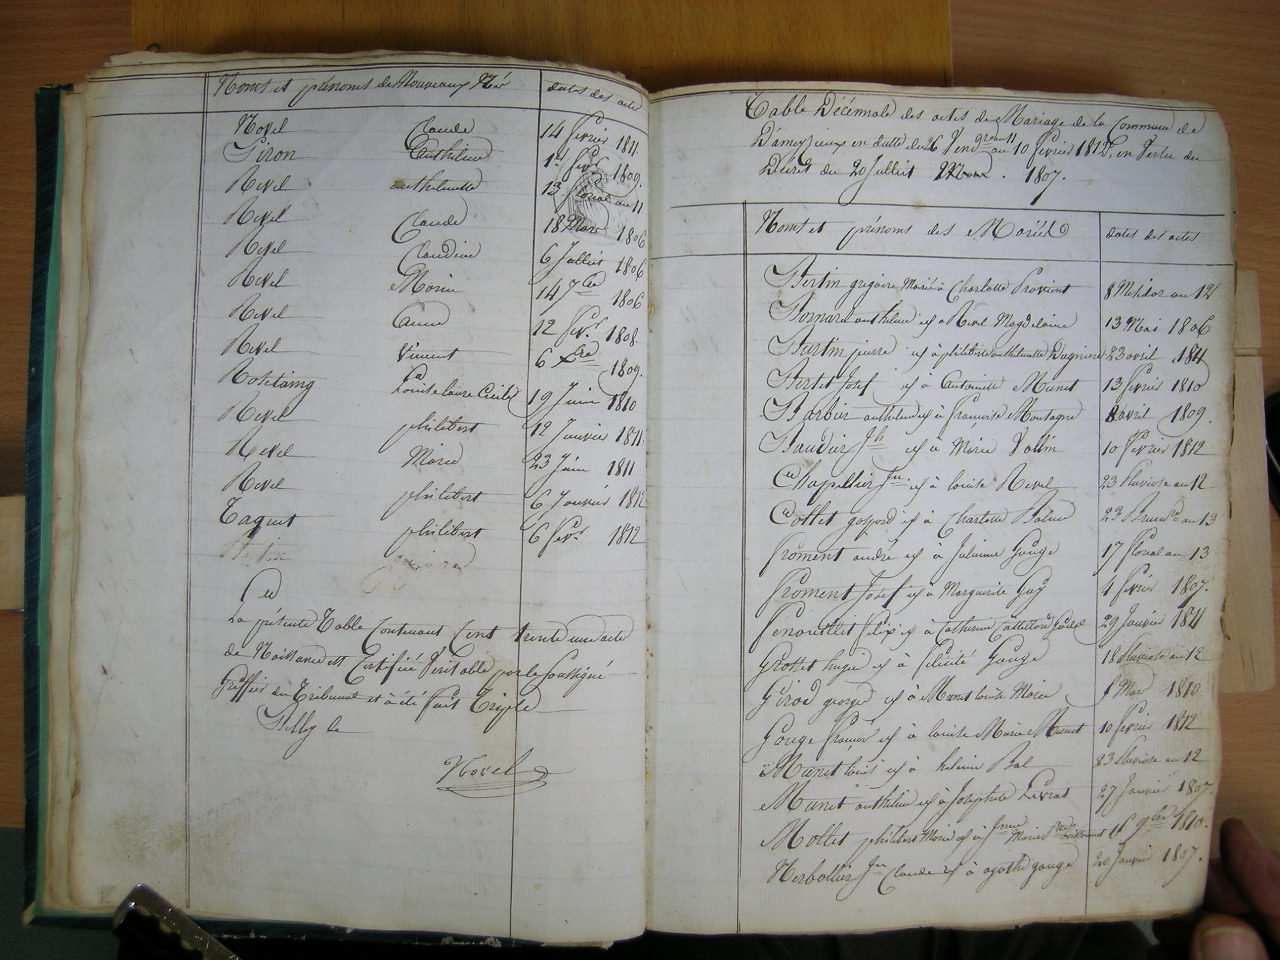 Noms et prénoms des Nouveaux Nés dates des actes
Novel Claude 14 fevrier 1811
Piron Anthelme 1809.
Revel anthelmette 13 floréal an 11
Revel Claude 18 Mars 1806
Revel Claudine 6 Juillet 1806
Revel Marie 14 7bre 1806
Revel Anne 12 fevr 1808
Revel Vincent 6 Xbre 1809.
Rostaing Louise laure Cécile 19 Juin 1810
Revel philibert 12 Janvier 1811
Revel Marie 23 Juin 1811
Revel philibert 6 Janvier 1812
Taquet philibert 6 fevr 1812
La présente Table Contenant Cent trente une acte
de Naissance est Certifiée Véritable par le Soussigné
Greffier du Tribunal et à été fait Triple
Novel
Table Décémale des actes de Mariage de la Commune de
en datte du 26 Vend an 11 au 10 fevrier 1812, en Vertu du
Décret du 20 Juillet 1807.
Noms et prénoms des Mariés dates des actes
Bertin grégoire Marié à Charlotte 8 Messidor an 12
Bornard anthelme et à Revel Magdelaine 13 Mai 1806
Burtin pierre et à philiberte anthelmette 23 avril 1811
Bertet Josef et à Antoinette Munet 13 fevrier 1810
Barbier anthelme et à françoise Montagne 8 avril 1809.
Baudier Jh et à Marie 10 fevrier 1812
Chapellier Jn et à louise Revel 23 Pluviose an 12
Collet gaspard et à Charlotte an 13
froment andré et à Julienne Gouge 17 floréal an 13
froment Josef et à Marguerite Guy 4 fevrier 1807.
Felix et à Catherine 29 Janvier 1811
Grottet hugue et à félicité Gouge 18 Pluviose an 12
Girod george et à Munet louise Marie Mars 1810
Gouge françois et à louise Marie Munet 10 fevrier 1812
Munet louis et à helene Bal 23 Pluviose an 12
Munet anthelme et à Josephte Livrat 27 Janvier 1807.
Mollet philibert Marié et à 9bre 1810.
Nerbollier Jn Claude et à agathe gouge 20 Janvier 1807.